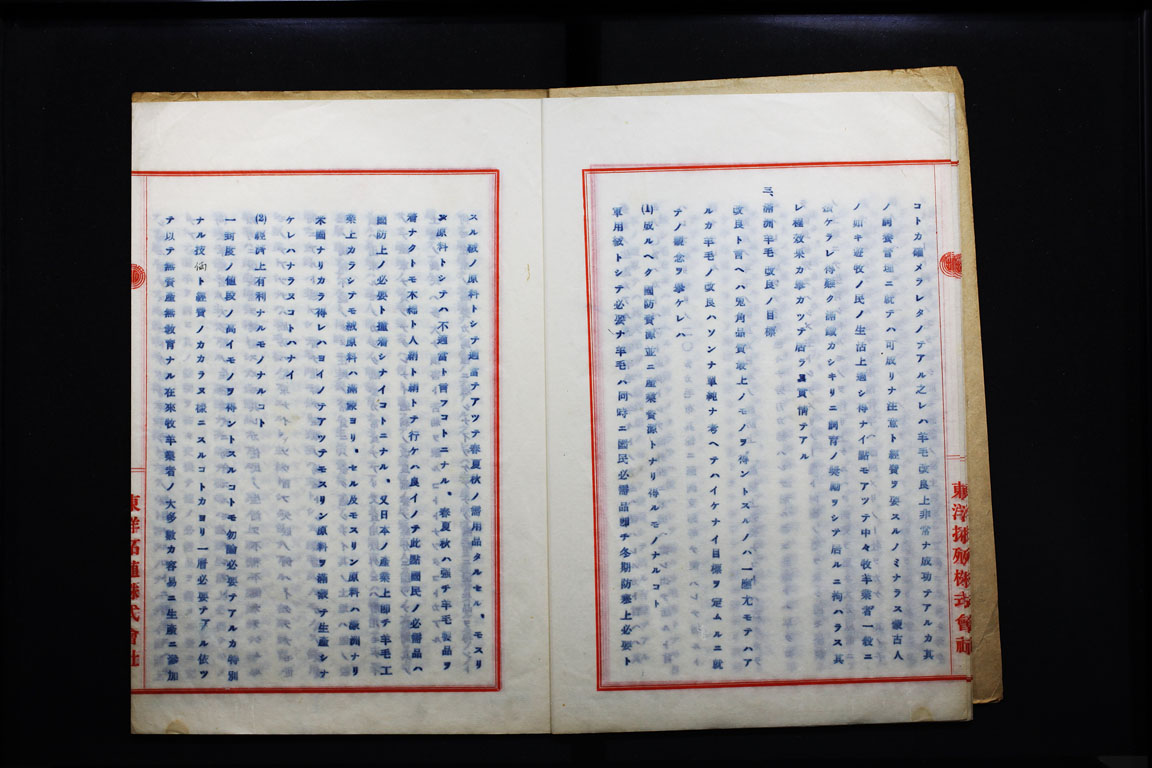 コトカ確メラレタノテアル之レハ羊毛改良上非常ナ成功テアルカ其
ノ飼養管理ニ就テハ可成リナ注意ト經費ヲ要スルノミナラス蒙古人
ノ如キ遊牧ノ民ノ生活上適シ得ナイ點モアツテ中々牧羊業者一般ニ
ケラレ得難ク滿鐵カシキリニ飼育ノ奬勵ヲシテ居ルニ拘ハラス其
レ程效果カ擧カツテ居ラヌ實情テアル
三、滿洲羊毛改良ノ目標
改良ト言ヘハ兎角品質最上ノモノヲ得ントスルノハ一應尤モテハア
ルカ羊毛ノ改良ハソンナ單純ナ考ヘテハイケナイ目標ヲ定ムルニ就
テノ概念ヲ擧ケレハ
(1)成ルヘク國防資源並ニ產業資源トナリ得ルモノナルコト
軍用絨トシテ必要ナ羊毛ハ同時ニ國民必需品卽チ冬期防寒上必要ト
スル絨ノ原料トシテ適當テアツテ春夏秋ノ需用品タルセル、モスリ
ン原料トシテハ不適當ト言フコトニナル、春夏秋ハ强チ羊毛製品ヲ
着ナクトモ木綿ト人絹ト絹トテ行ケハ良イノテ此點國民ノ必需品ハ
國防上ノ必要ト撞着シナイコトニナル、又日本ノ產業上卽チ羊毛工
業上カラシテモ絨原料ハ滿蒙ヨリ、セル及モスリン原料ハ濠洲ナリ
米國ナリカラ得レハヨイノテアツテモスリン原料ヲ滿蒙テ生產シナ
ケレハナラヌコトハナイ
(2)經濟上有利ナルモノナルコト
一封度ノ値段ノ高イモノヲ得ントスルコトモ勿論必要テアルカ特別
ナル技倆ト經費ノカカラヌ樣ニスルコトカヨリ一層必要テアル依ツ
テ以テ無資產無敎育ナル在來牧羊業者ノ大多數カ容易ニ生產ニ參加
東洋拓殖株式會社
東洋拓殖株式會社